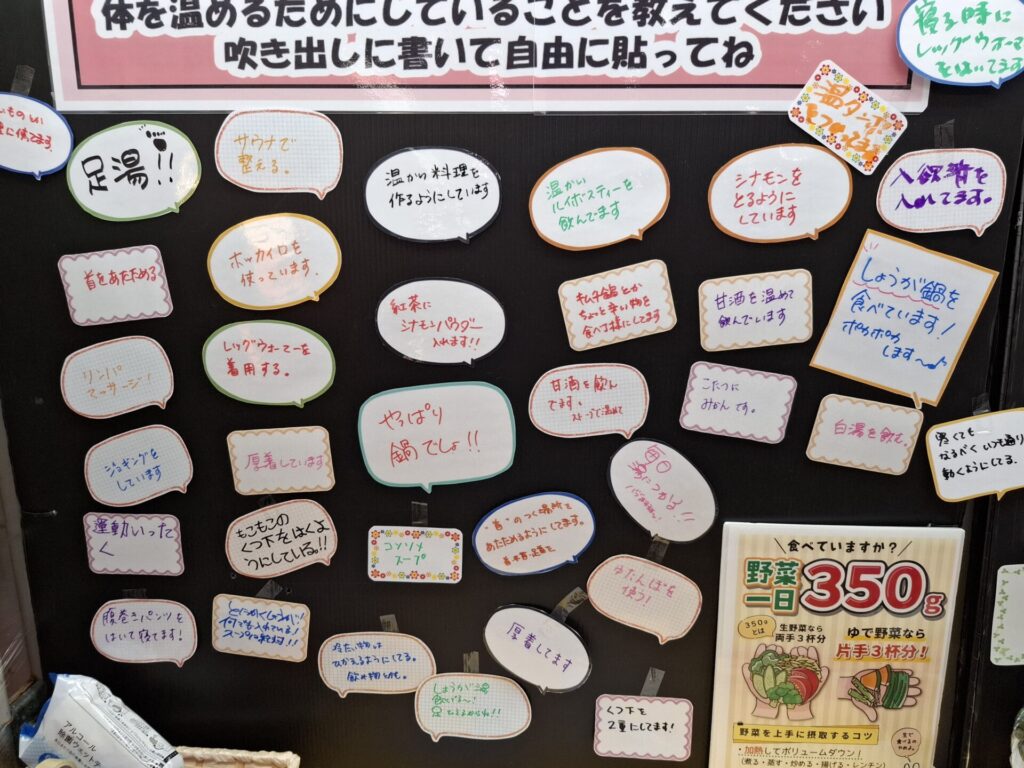 体を温めるためにしていることを教えてください
吹き出しに書いて自由に貼ってね
寝る時に
レッグウォーマー
をはいてます
足湯!!
サウナで
整える。
温かい料理を
作るようにしています
温かい
ルイボスティーを
飲んでます
シナモンを
とるように
しています
入浴剤を
入れてます。
首をあたためる
ホッカイロを
使っています。
紅茶に
シナモンパウダー
入れます!!
キムチ鍋とか
ちょっと辛い物を
食べる様にしてます
甘酒を温めて
飲んでいます
しょうが鍋を
食べています!
ポカポカ
します〜♪
リンパ
マッサージ!
レッグウォーマーを
着用する。
やっぱり
鍋でしょ!!
甘酒を飲ん
でます。
ストーブで温めて
こたつに
みかんです。
白湯を飲む。
寒くても
なるべくいつも通り
動くようにしてる。
ジョギングを
しています
厚着しています
毎日
湯につかる!!
運動いった
く
もこもこの
くつ下をはくよ
うにしている!!
コンソメ
スープ
"首"のつく場所を
あたためるようにしてます。
首・手首・足首を
ゆたんぽを
使う!
腹巻きパンツを
はいて寝てます!
とにかくしょうが!
何でも入れている!
冷たい物は
ひかえるようにしてる。
飲み物とかも。
厚着してます
しょうが湯
くつ下を
2重にしてます!
食べていますか?
野菜
一日
350g
350g
とは
生野菜なら
両手3杯分
ゆで野菜なら
片手3杯分!
野菜を上手に摂取するコツ
・加熱してボリュームダウン!
(煮る・蒸す・炒める・揚げる・レンチン)
アルコール
除菌ウェット